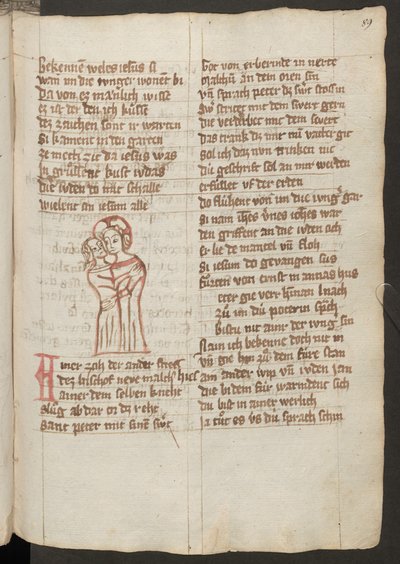 89
bekennen weles iesus si
wan im die iunger wonent bi
Da von ez mänlich wisse
ez ist der den ich küsse
dez zaichen sont ir warten
Si kament in den garten
ze mettzit da iesus was
in grüssent kust iudas
die iuden do mit schalle
vielent an iesum alle
Ainer zoh der ander streft
dez bischof neve malch hies
Ainer dem selben kneht
slůg ab daz or dz reht
Sant peter mit sinē swt
hor von er bernde in nerte
malchū an dem oren sin
vn̄ sprach peter dz swt stos in
swer stritet mit dem swert gern
die verderbet mit dem swert
das trank dz mir mī vatter git
sol ich daz nun trinken nit
dū geschrift sol an mir werden
erfüllet vf der erden
do fluhent von im die iūg gar
si nam ihes vnes iohes war
den griffent an die iuden och
er lie de mantel vn̄ floh
Si iesum do gevangen sus
fůrten von ernst in annas hus
peter gie verr hinan nach
zů im dū portnerin sprch
bistu nit ainr der iung sin
Nain ich bekenne doch nit in
vn̄ gie hin zů dem füre stan
am ander wip vn̄ iuden san
die bi dem für warmdent sich
du bist ir ainer werlich
ia tůt es vs dū sprach schin